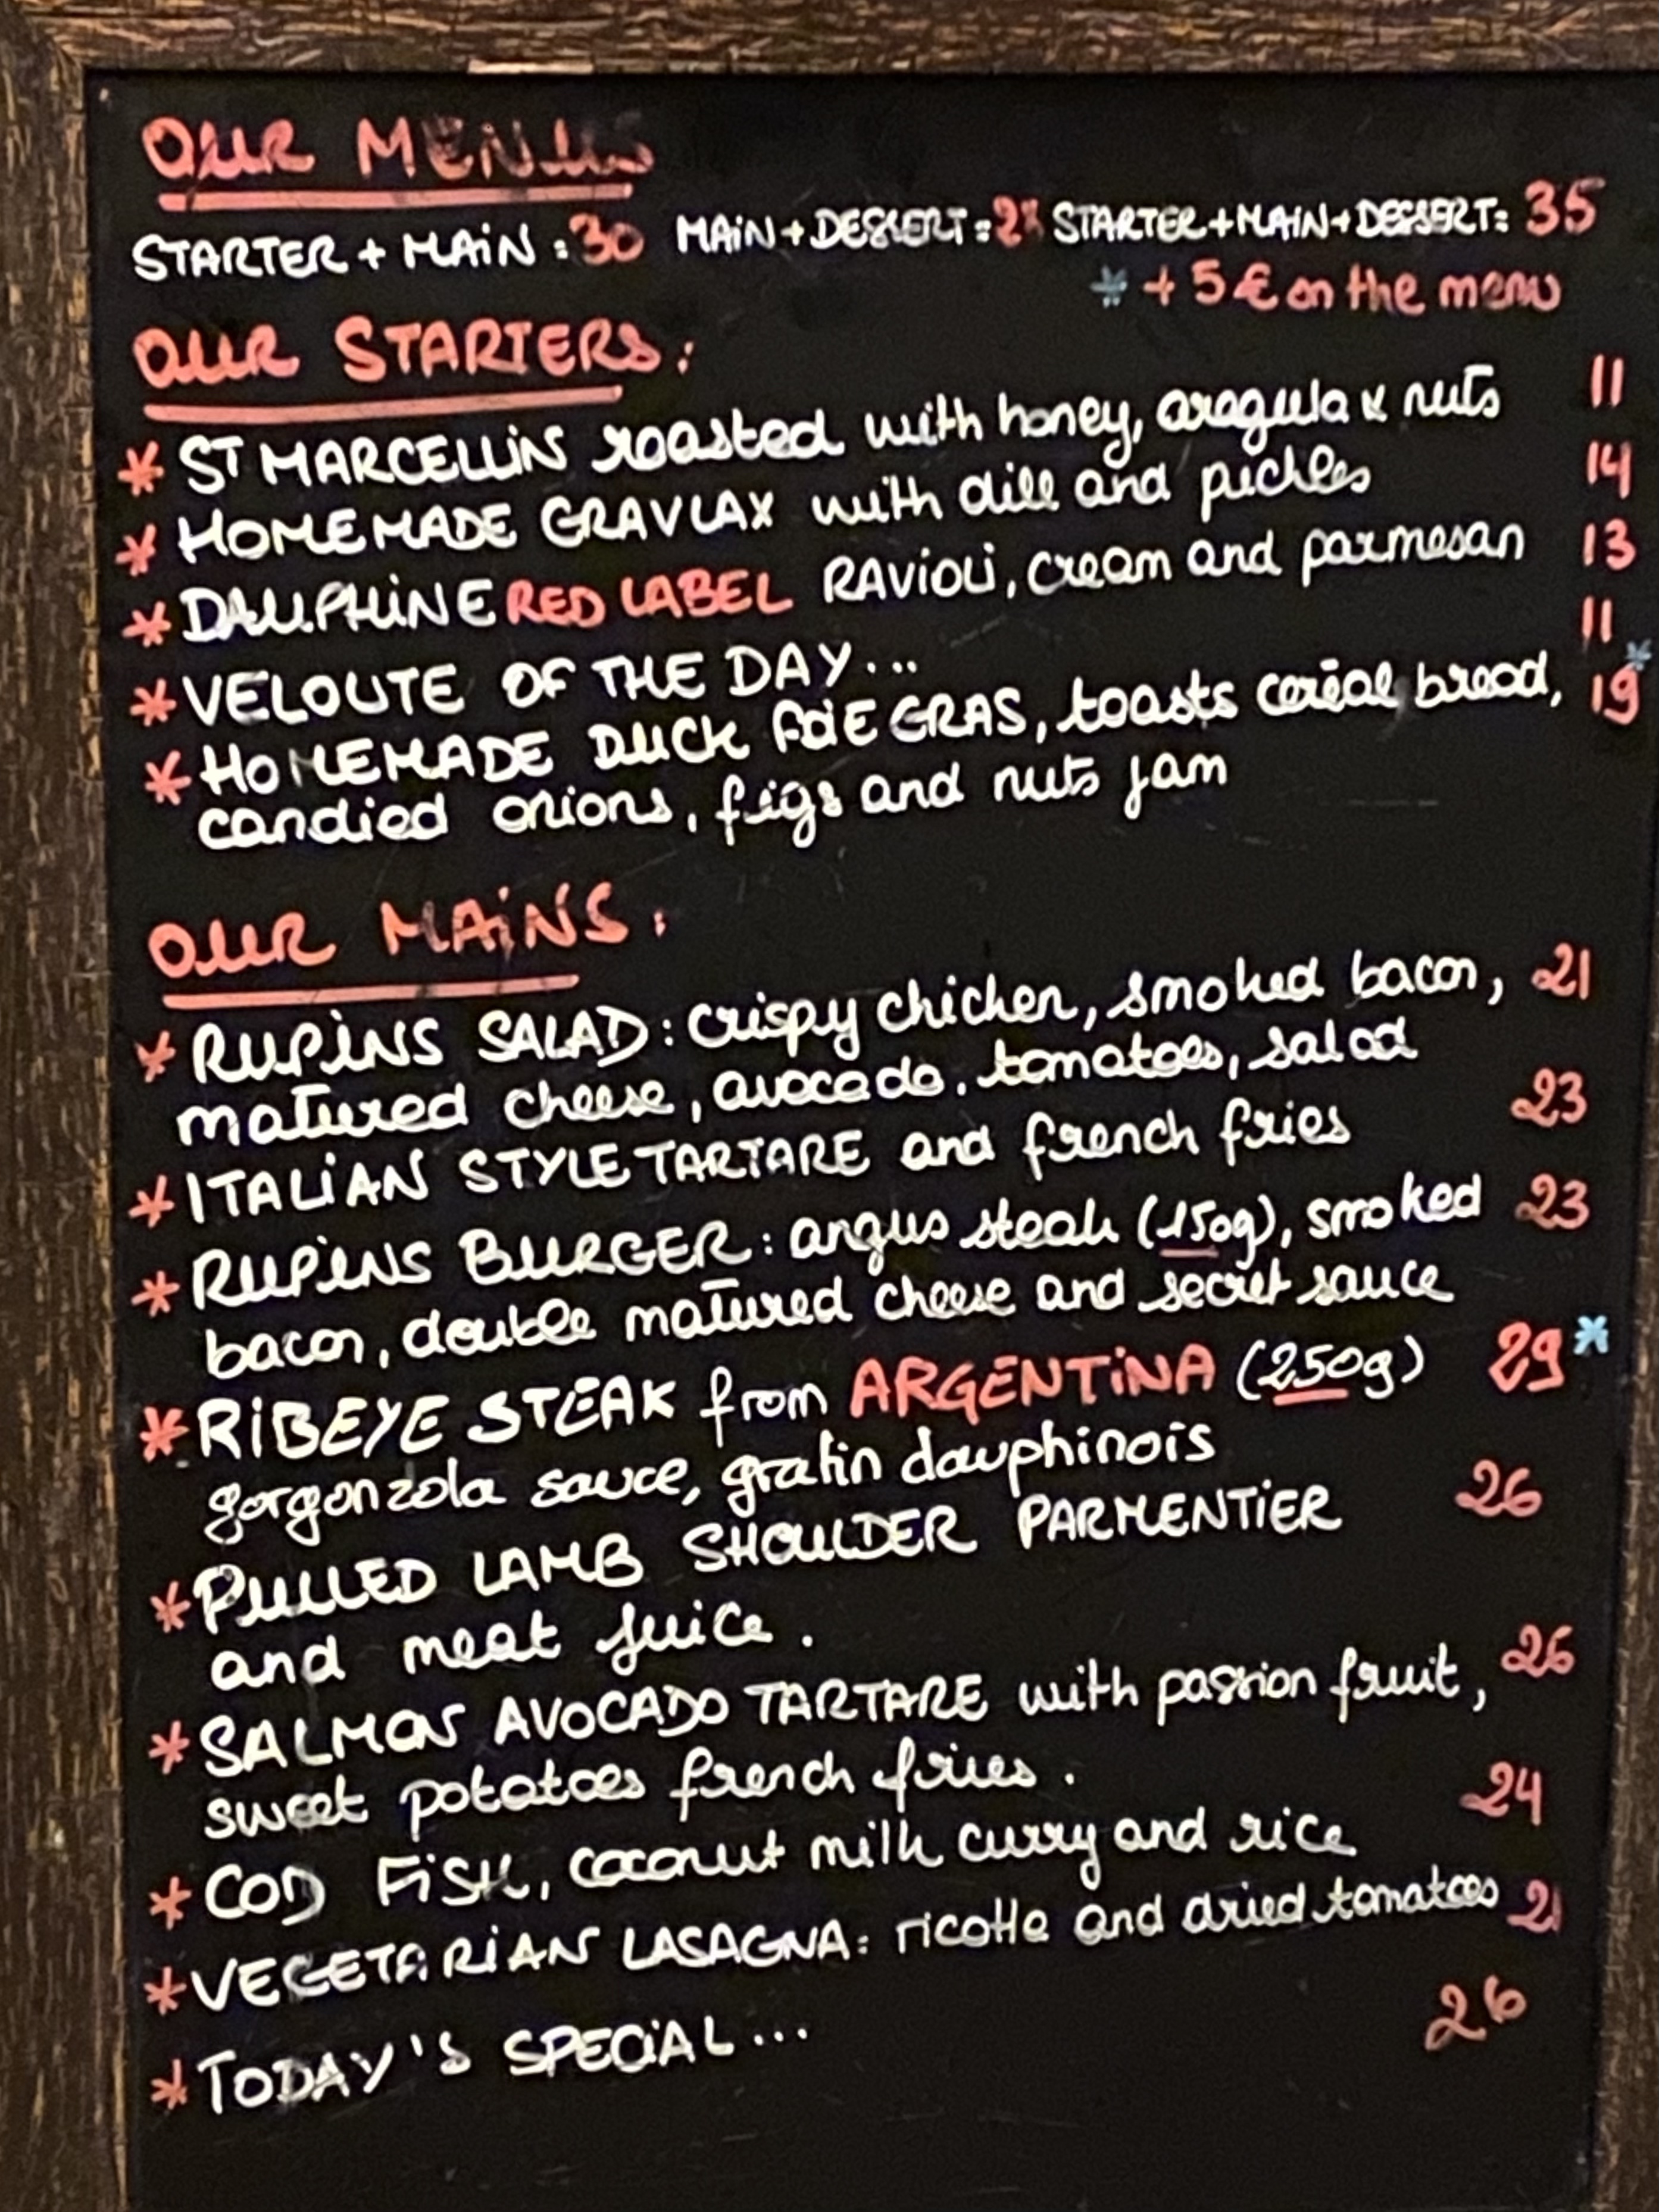 OUR MENUS
STARTER + MAIN : 30 MAIN + DESSERT = STARTER + MAIN + DESSERT = 35
* + 5 € on the menu
OUR STARTERS :
* ST MARCELLIN roasted with honey, aregula & nuts 11
* HOMEMADE GRAVLAX with dill and pickles 14
* DAUPHINE RED LABEL RAVIOLI, cream and parmesan 13
* VELOUTE OF THE DAY... 11
* HOMEMADE DUCK FOIE GRAS, toasts cereal bread, 19*
candied onions, figs and nuts jam
OUR MAINS :
* RUPINS SALAD : crispy chicken, smoked bacon, 21
matured cheese, avocado, tomatoes, salad
* ITALIAN STYLE TARTARE and french fries 23
* RUPINS BURGER : angus steak (150g), smoked 23
bacon, double matured cheese and secret sauce
* RIBEYE STEAK from ARGENTINA (250g) 29*
gorgonzola sauce, gratin dauphinois
* PULLED LAMB SHOULDER PARMENTIER 26
and meat juice .
* SALMON AVOCADO TARTARE with passion fruit, 26
sweet potatoes french fries .
* COD FISH, coconut milk curry and rice 24
* VEGETARIAN LASAGNA : ricotta and dried tomatoes 21
* TODAY'S SPECIAL... 26